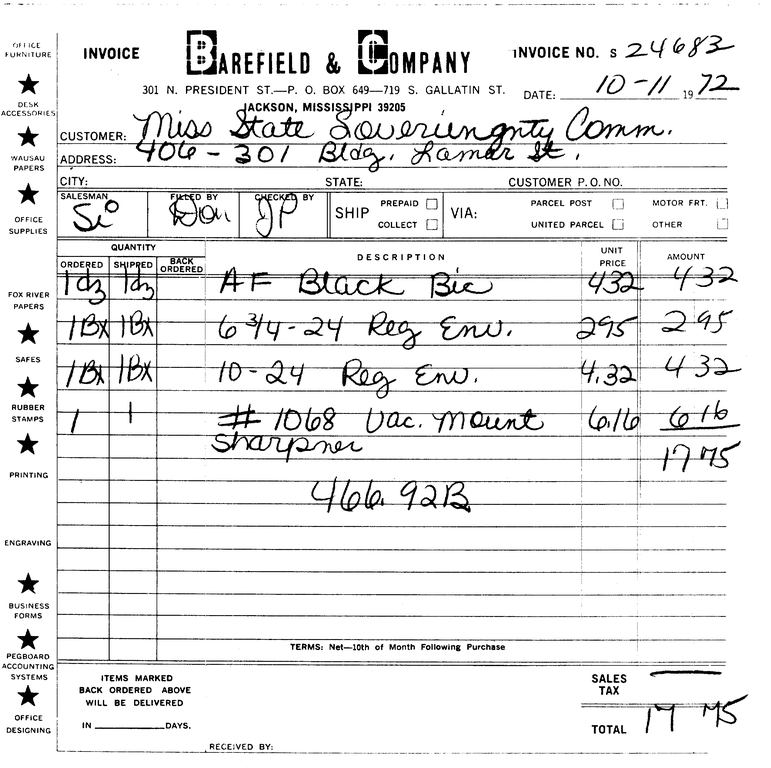 INVOICE
BAREFIELD & COMPANY
INVOICE NO. S 24683
301 N. PRESIDENT ST.—P. O. BOX 649—719 S. GALLATIN ST.
JACKSON, MISSISSIPPI 39205
DATE: 10-11 1972
CUSTOMER: Miss State Sovereingnty Comm.
ADDRESS: 406-301 Bldg. Lamar St.
CITY: STATE: CUSTOMER P.O. NO.
SALESMAN FILLED BY CHECKED BY
Si Don JP
SHIP PREPAID COLLECT VIA: PARCEL POST UNITED PARCEL MOTOR FRT. OTHER
QUANTITY DESCRIPTION UNIT PRICE AMOUNT
ORDERED SHIPPED BACK ORDERED
1dz 1dz AF Black Bic 432 4 32
1Bx 1Bx 6 3/4-24 Reg Env. 295 2 95
1Bx 1Bx 10-24 Reg Env. 4.32 4 32
1 1 # 1068 Vac. Mount 6.16 6 16
Sharpner 17 75
466.92B
TERMS: Net—10th of Month Following Purchase
ITEMS MARKED
BACK ORDERED ABOVE
WILL BE DELIVERED
IN DAYS.
SALES TAX
TOTAL 17 75
RECEIVED BY:
OFFICE FURNITURE
DESK ACCESSORIES
WAUSAU PAPERS
OFFICE SUPPLIES
FOX RIVER PAPERS
SAFES
RUBBER STAMPS
PRINTING
ENGRAVING
BUSINESS FORMS
PEGBOARD ACCOUNTING SYSTEMS
OFFICE DESIGNING